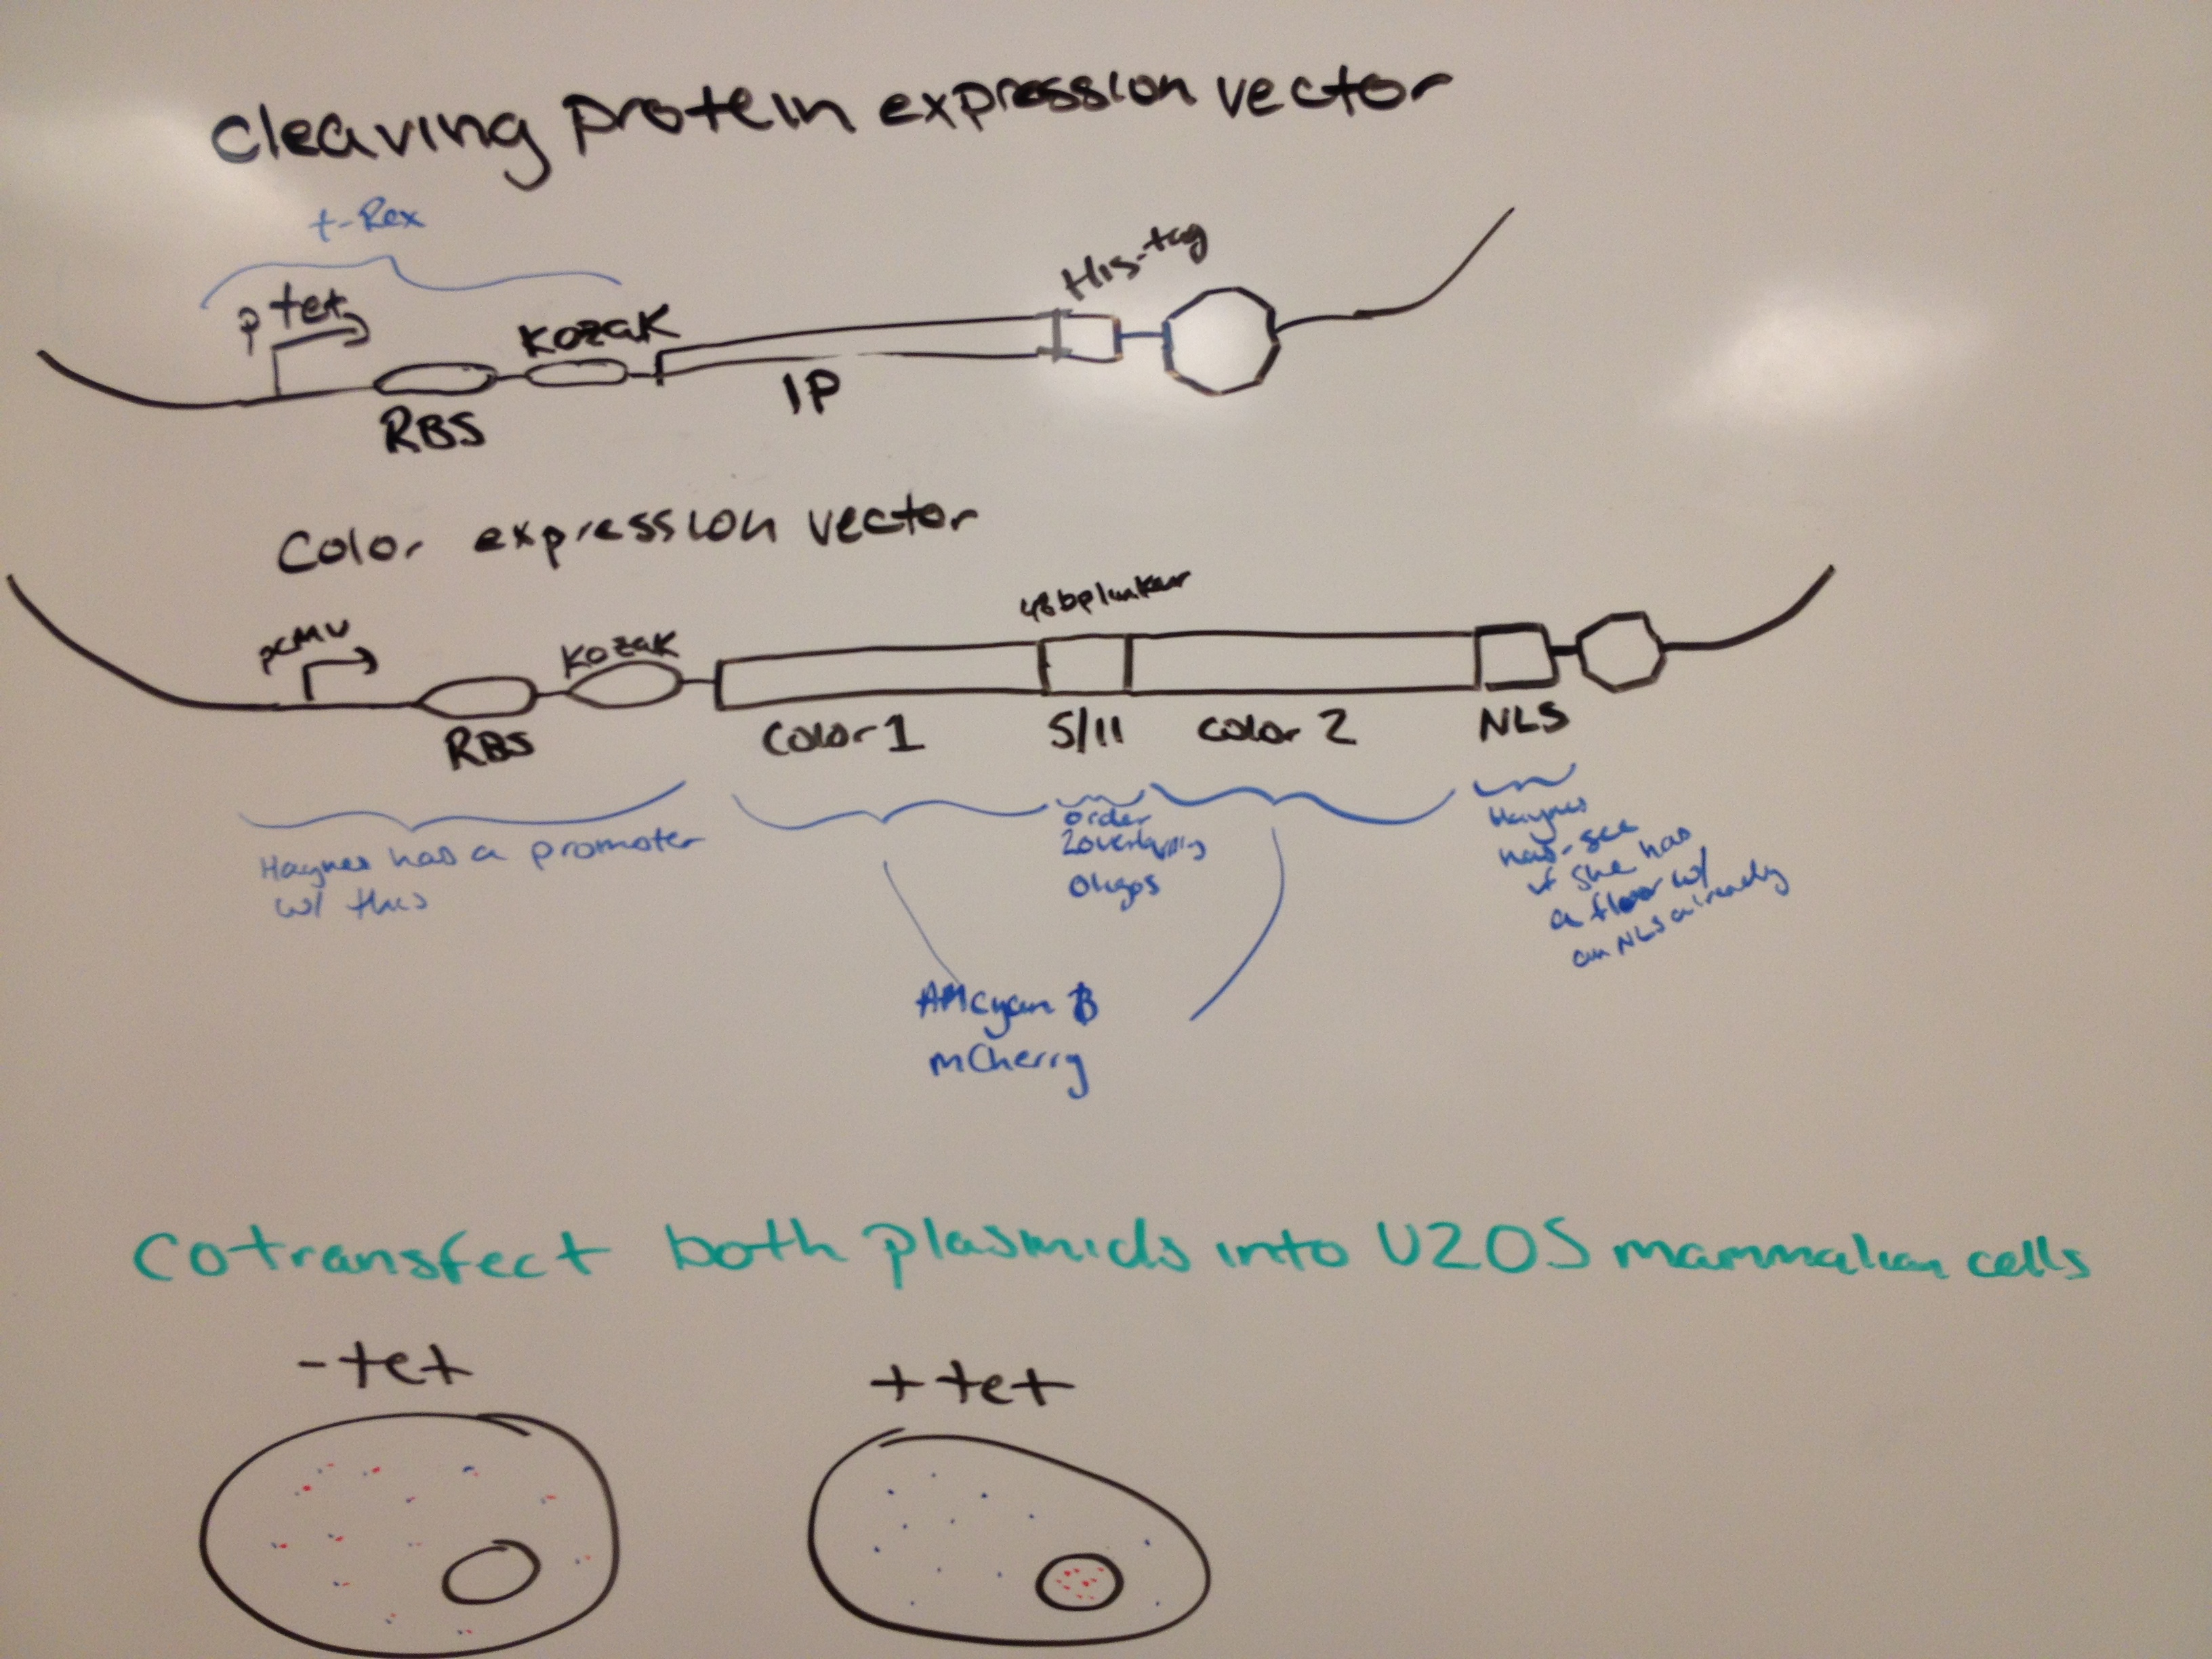 cleaving protein expression vector
t-Rex
p tet
RBS
Kozak
IP
His-tag
Color expression vector
pCMV
RBS
Kozak
48bp linker
Color 1
S/11
color 2
NLS
Haynes has a promoter
w/ this
order
2 overlapping
oligos
Haynes
has - see
if she has
a fluor w/
an NLS already
AmCyan &
mCherry
Cotransfect both plasmids into U2OS mammalian cells
-tet
+ tet